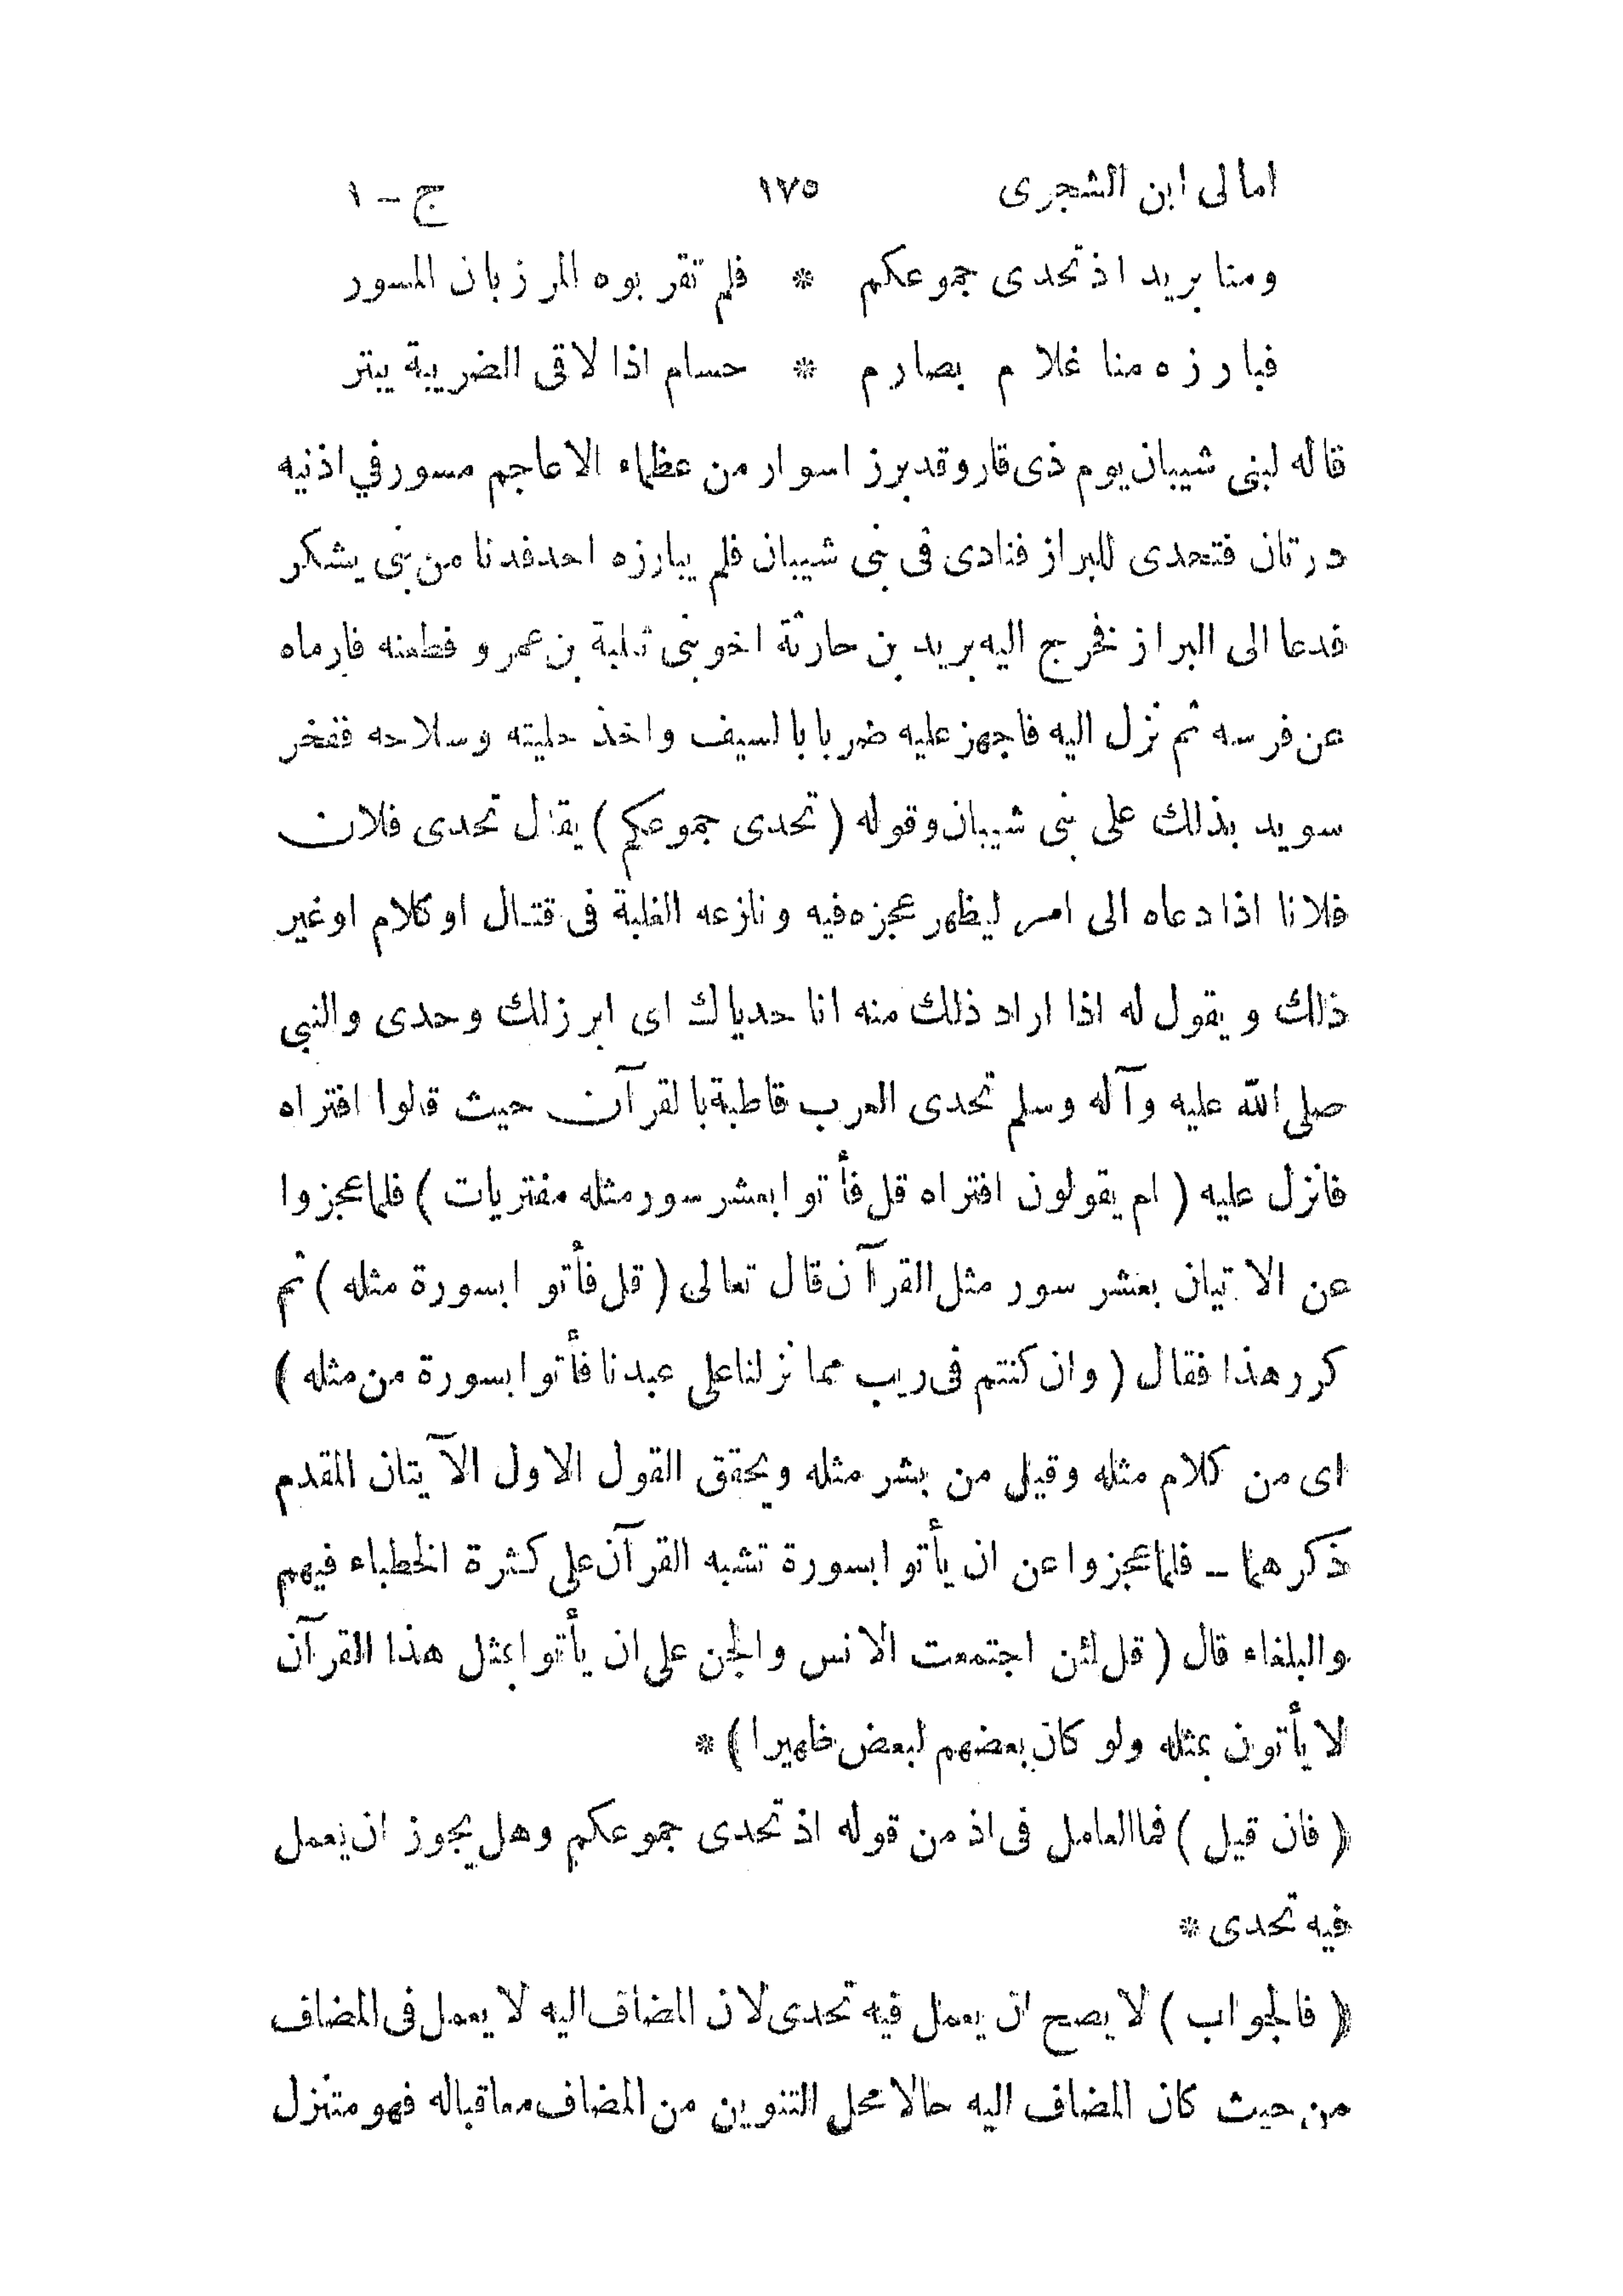 امالى ابن الشجرى ١٧٥ ج – ١
ومنا بريد اذ تحدى جموعكم * فلم تقربوه المرزبان المسور
فبارزه منا غلام بصارم * حسام اذا لاقى الضريبة يبتر
قاله لبنى شيبان يوم ذى قار وقد برز اسوار من عظماء الاعاجم مسور في اذنيه
درتان فتحدى للبراز فنادى فى بنى شيبان فلم يبارزه احد فدنا من بنى يشكر
فدعا الى البراز فخرج اليه بريد بن حارثة اخو بنى ثعلبة بن عمرو فطعنه فارماه
عن فرسه ثم نزل اليه فاجهز عليه ضربا بالسيف واخذ حليته وسلاحه ففخر
سويد بذلك على بنى شيبان وقوله ( تحدى جموعكم ) يقال تحدى فلان
فلانا اذا دعاه الى امر ليظهر عجزه فيه ونازعه الغلبة فى قتال او كلام او غير
ذلك ويقول له اذا اراد ذلك منه انا حدياك اى ابرز لك وحدى والنبي
صلى الله عليه وآله وسلم تحدى العرب قاطبة بالقرآن حيث قالوا افتراه
فانزل عليه ( ام يقولون افتراه قل فأتوا بعشر سور مثله مفتريات ) فلما عجزوا
عن الاتيان بعشر سور مثل القرآن قال تعالى ( قل فأتوا بسورة مثله ) ثم
كرر هذا فقال ( وان كنتم فى ريب مما نزلنا على عبدنا فأتوا بسورة من مثله )
اى من كلام مثله وقيل من بشر مثله ويحقق القول الاول الآيتان المقدم
ذكرهما – فلما عجزوا عن ان يأتوا بسورة تشبه القرآن على كثرة الخطباء فيهم
والبلغاء قال ( قل لئن اجتمعت الانس والجن على ان يأتوا بمثل هذا القرآن
لا يأتون بمثله ولو كان بعضهم لبعض ظهيرا ) *
( فان قيل ) فما العامل فى اذ من قوله اذ تحدى جموعكم وهل يجوز ان يعمل
فيه تحدى *
( فالجواب ) لا يصح ان يعمل فيه تحدى لان المضاف اليه لا يعمل فى المضاف
من حيث كان المضاف اليه حالا محل التنوين من المضاف معاقبا له فهو متنزل